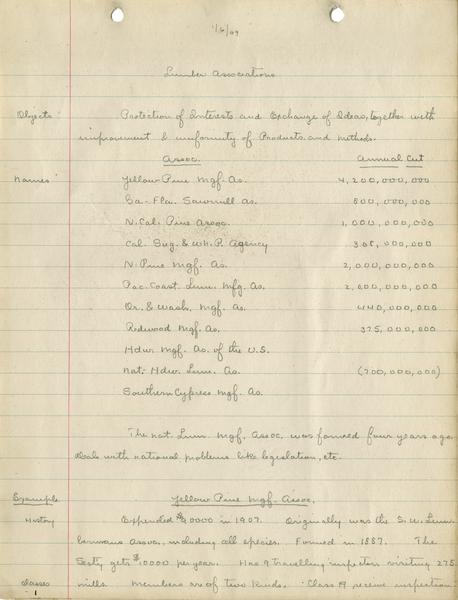 1/6/09
Lumber Associations
Objects Protection of Interests and Exchange of Ideas, together with
improvement & uniformity of Products and methods.
Assoc. Annual Cut
Names Yellow Pine Mgf. As. 4,200,000,000
Ga-Fla. Sawmill as. 800,000,000
N. Cal. Pine Assoc. 1,000,000,000
Cal. Sug. & Wh. P. Agency 000,000
N. Pine Mgf. As. 2,000,000,000
Pac. Coast Lum. Mfg. As. 2,000,000,000
Or. & Wash. Mgf. As 440,000,000
Redwood Mgf. As. 375,000,000
Hdw. Mgf. As. of the U.S.
Nat. Hdw. Lum. As. (700,000,000)
Southern Cypress Mgf. As.
The Nat. Lum. Mgf. Assoc. was formed four years ago.
Deals with national problems like legislation, etc.
Example Yellow Pine Mgf. Assoc.
History Expended in 1907. Originally was the S. W. Lum-
bermans Assoc., including all species. Formed in 1887. The
Secty gets $10000 per year. Has 9 travelling inspectors visiting 275
classes mills. Members are of two kinds. Class A receive inspection
1